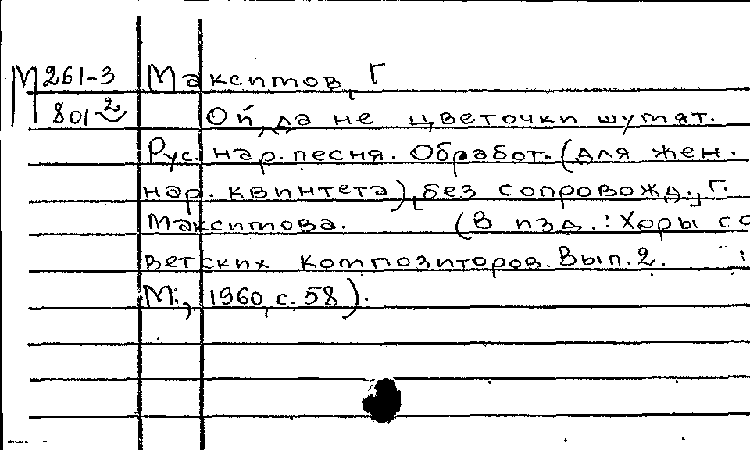 М 261-3 Максимов, Г
801-2 Ой, да не цветочки шумят.
Рус. нар. песня. Обработ. (для жен.
нар. квинтета), без сопровожд., Г.
Максимова. (В изд.: Хоры со
ветских композиторов. Вып. 2.
М., 1960, с. 58).